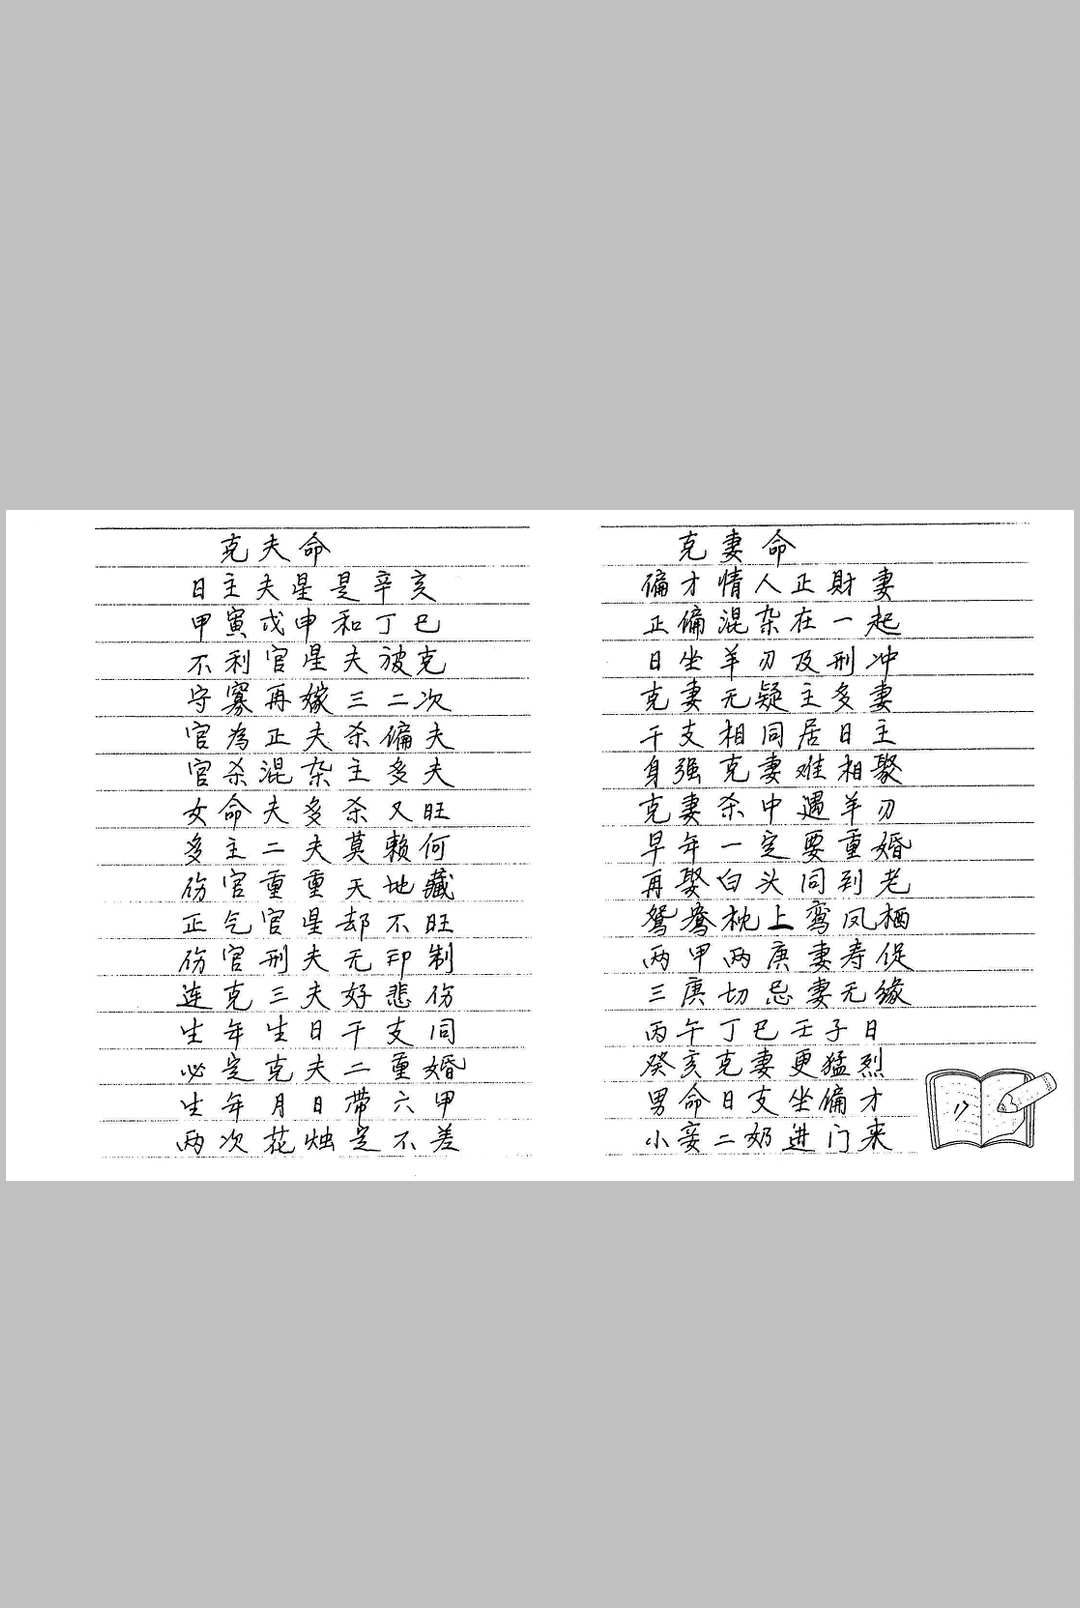 克夫命
日主夫星是辛亥
甲寅戊申和丁巳
不利官星夫被克
守寡再嫁三二次
官為正夫杀偏夫
官杀混杂主多夫
女命夫多杀又旺
多主二夫莫赖何
伤官重重天地藏
正气官星却不旺
伤官刑夫无印制
连克三夫好悲伤
生年生日干支同
必定克夫二重婚
生年月日带六甲
两次花烛定不差
克妻命
偏才情人正財妻
正偏混杂在一起
日坐羊刃及刑冲
克妻无疑主多妻
干支相同居日主
身强克妻难相聚
克妻杀中遇羊刃
早年一定要重婚
再娶白头同到老
鸳鸯枕上鸾凤栖
两甲两庚妻寿促
三庚切忌妻无缘
丙午丁巳壬子日
癸亥克妻更猛烈
男命日支坐偏才
小妾二奶进门来
17